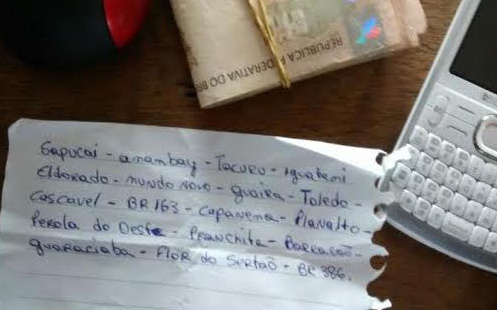 REPUBLICA FEDERATIVA DO BR
Sapucai - amambay - Tacuru - iguatemi
Eldorado - mundo novo - guaira - Toledo -
Cascavel - BR 163 - capanema - Planalto -
Perola do Oeste - Pranchita - Barracaõ -
guaraciaba - Flor do Sertaõ - BR 386.